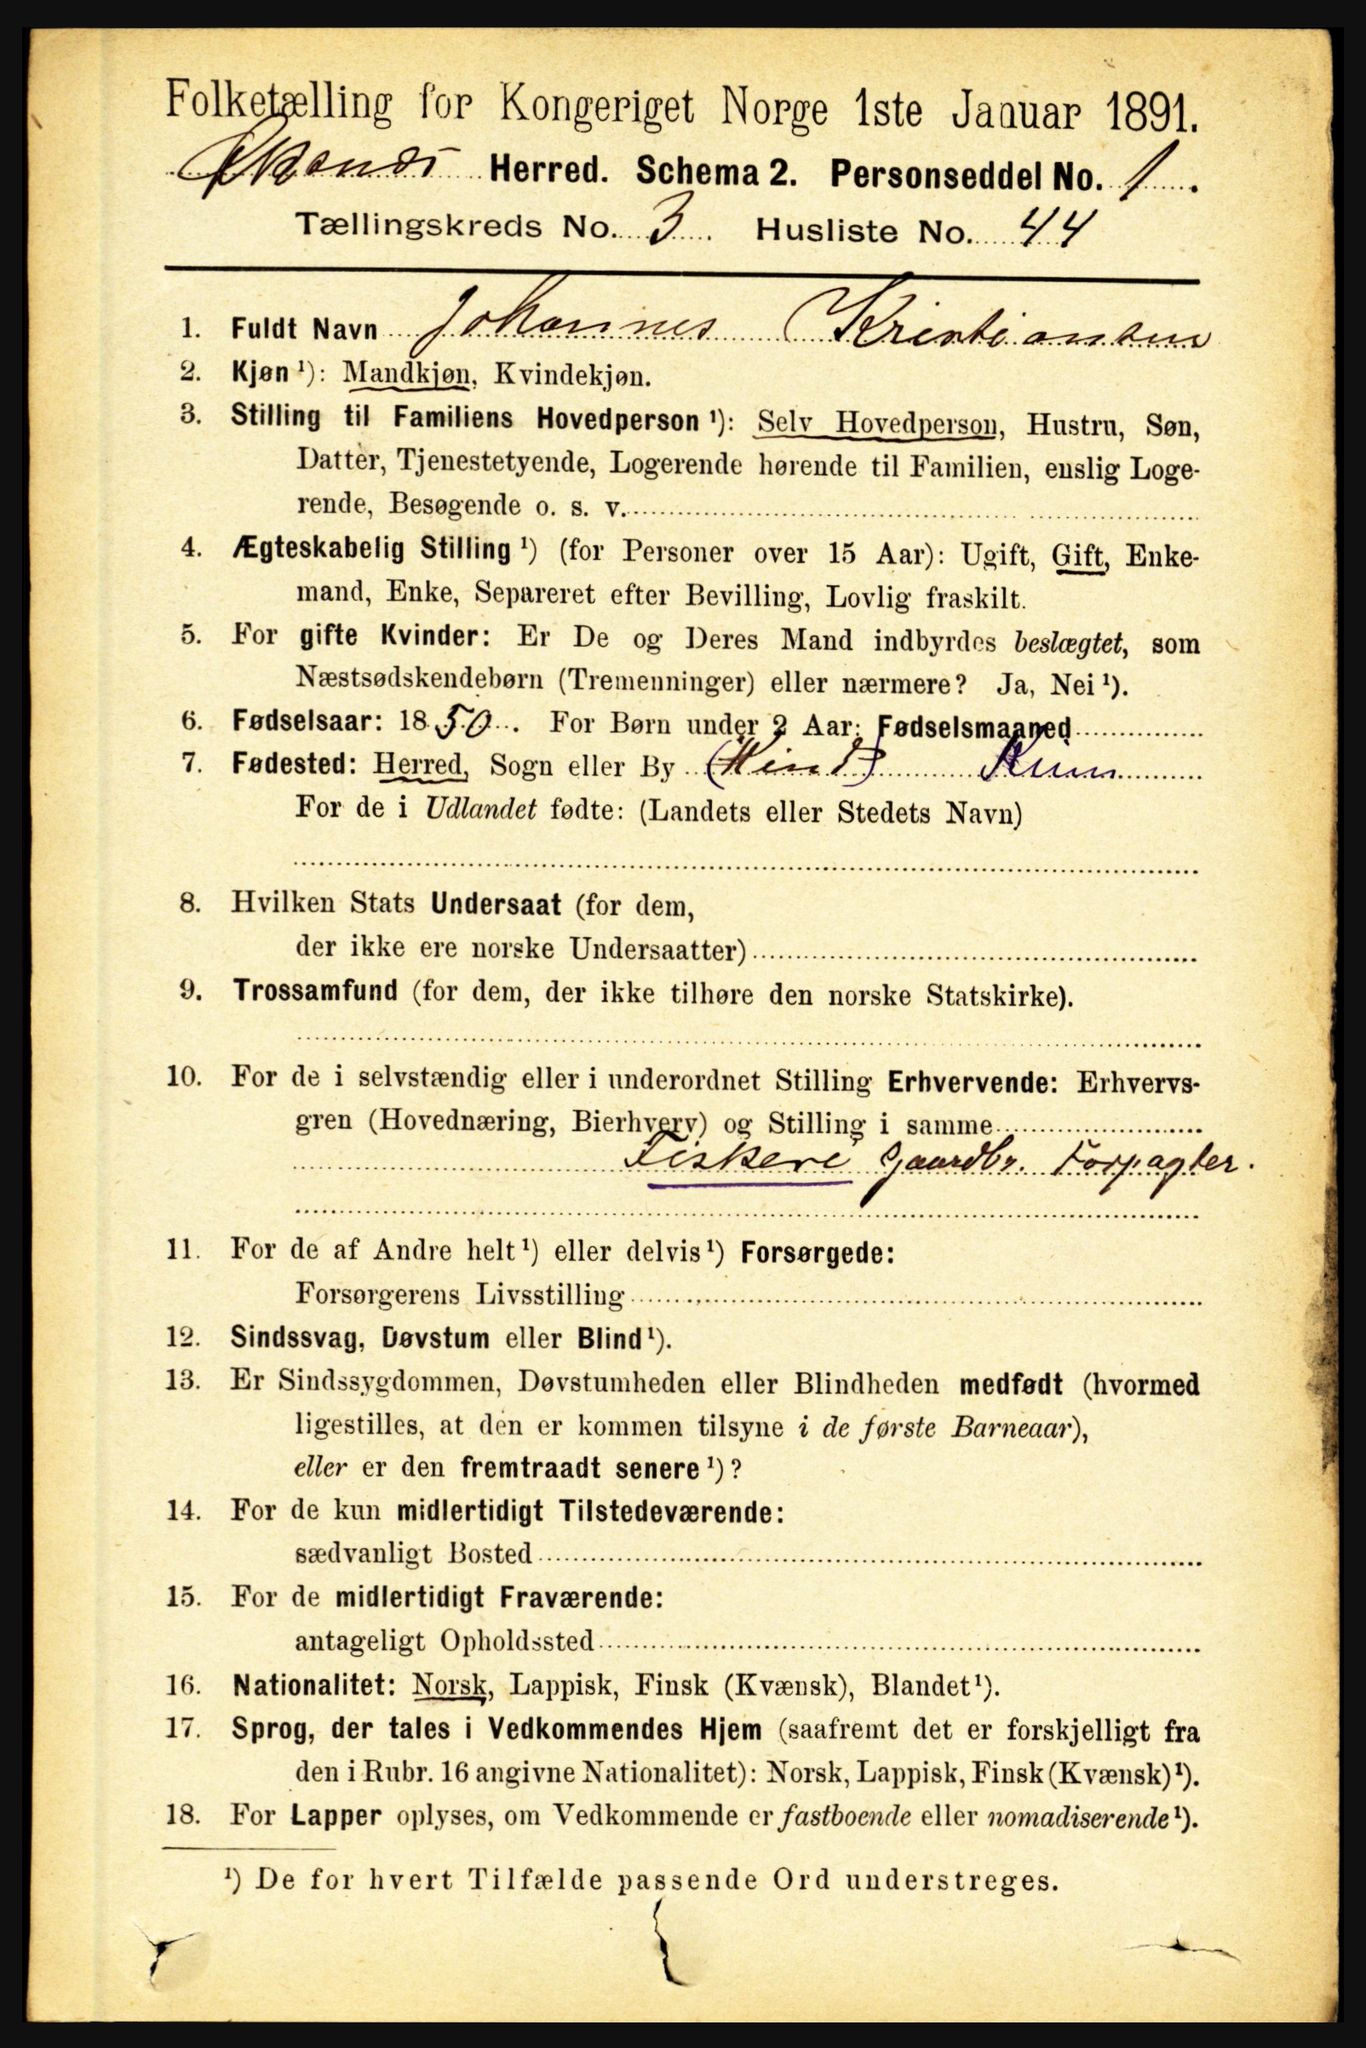 Folketælling for Kongeriget Norge 1ste Januar 1891.
Øksnes Herred. Schema 2. Personseddel No. 1.
Tællingskreds No. 3. Husliste No. 44
1. Fuldt Navn Johannes Kristiansen
2. Kjøn ¹): Mandkjøn, Kvindekjøn.
3. Stilling til Familiens Hovedperson ¹): Selv Hovedperson, Hustru, Søn,
Datter, Tjenestetyende, Logerende hørende til Familien, enslig Loge-
rende, Besøgende o. s. v.
4. Ægteskabelig Stilling ¹) (for Personer over 15 Aar): Ugift, Gift, Enke-
mand, Enke, Separeret efter Bevilling, Lovlig fraskilt.
5. For gifte Kvinder: Er De og Deres Mand indbyrdes beslægtet, som
Næstsødskendebørn (Tremenninger) eller nærmere? Ja, Nei ¹).
6. Fødselsaar: 1850. For Børn under 2 Aar: Fødselsmaaned
7. Fødested: Herred, Sogn eller By
For de i Udlandet fødte: (Landets eller Stedets Navn)
8. Hvilken Stats Undersaat (for dem,
der ikke ere norske Undersaatter)
9. Trossamfund (for dem, der ikke tilhøre den norske Statskirke).
10. For de i selvstændig eller i underordnet Stilling Erhvervende: Erhvervs-
gren (Hovednæring, Bierhverv) og Stilling i samme
Fiskeri Gaardbr. Forpagter.
11. For de af Andre helt ¹) eller delvis ¹) Forsørgede:
Forsørgerens Livsstilling
12. Sindssvag, Døvstum eller Blind ¹).
13. Er Sindssygdommen, Døvstumheden eller Blindheden medfødt (hvormed
ligestilles, at den er kommen tilsyne i de første Barneaar),
eller er den fremtraadt senere ¹)?
14. For de kun midlertidigt Tilstedeværende:
sædvanligt Bosted
15. For de midlertidigt Fraværende:
antageligt Opholdssted
16. Nationalitet: Norsk, Lappisk, Finsk (Kvænsk), Blandet ¹).
17. Sprog, der tales i Vedkommendes Hjem (saafremt det er forskjelligt fra
den i Rubr. 16 angivne Nationalitet): Norsk, Lappisk, Finsk (Kvænsk) ¹).
18. For Lapper oplyses, om Vedkommende er fastboende eller nomadiserende ¹).
¹) De for hvert Tilfælde passende Ord understreges.